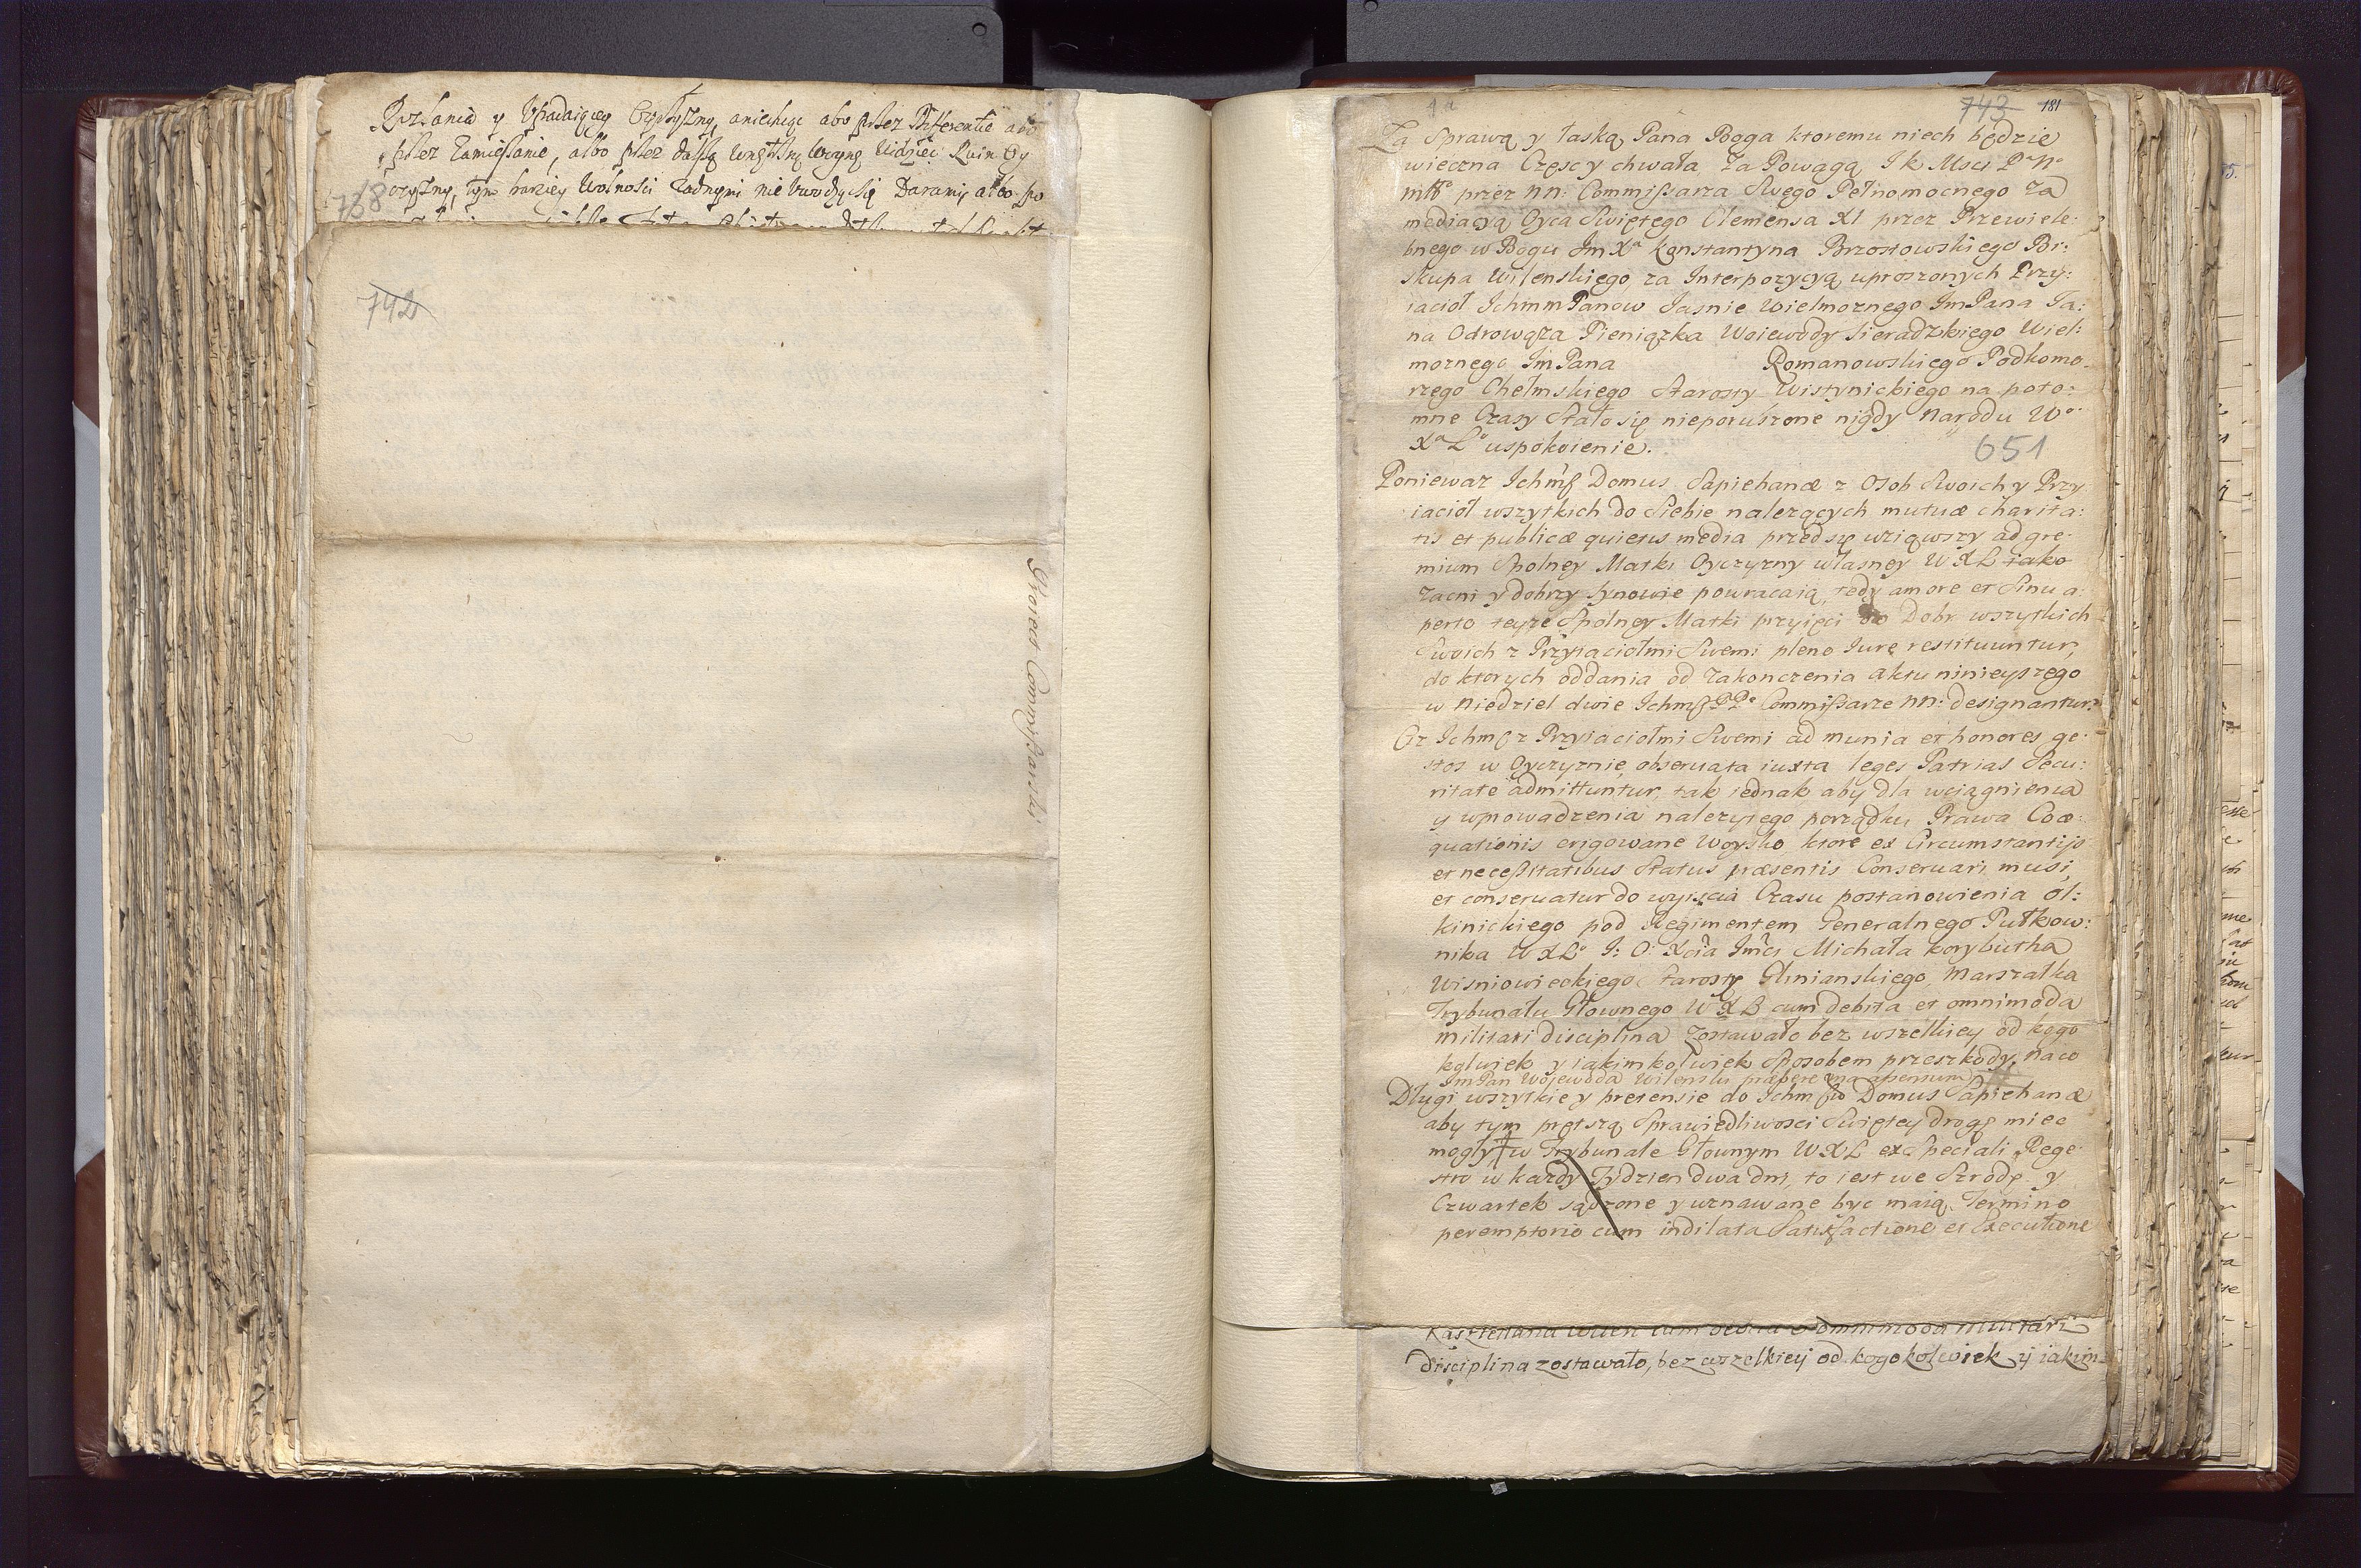 y Upadaiącey Oyczyzny, aniechcąc abo przez Differentie abo
przez Zamięszanie, albo przez dalszą wnętrzną Woynę Widzieć Ruin Oy
czyzny, tym barziey Wolności żadnymi nie uwodzący się Daramy albo po
768
742
Proiect Commissarski
4a
743 181
Za Sprawą y łaską Pana Boga ktoremu niech będzie
wieczna Częsc y chwała, Za Powagą I K Msci P N
mtt przez nn: Commissarza Swego Pełnomocnego za
mediacyą Oyca Swiętego Clemensa XI przez Przewiele:
bnego w Bogu Jm Xa Konstantyna Brzostowskiego Bi:
skupa Wilenskiego, za Interpozycyą uproszonych Przy:
iacioł Ichmm Panow Jasnie Wielmoznego Jm Pana Ja:
na Odrowąza Pieniązka Woiewody Sieradzkiego Wiel:
moznego Jm Pana Romanowskiego Podkomo
rzego Chełmskiego Starosty Wistynickiego na poto:
mne Czasy Stało się nieporuszone nigdy Narodu Wo
Xa Lo uspokoienie.
651
Poniewaz Ichmß Domus Sapiehanæ z Osob Swoich y Przy
iacioł wszytkich do Siebie nalezących mutuæ charita:
tis et publicæ quietis media przed się wziąwszy ad gre:
mium Spolney Matki Oyczyzny własney W X L iako
zacni y dobrzy Synowie powracaią, tedy amore et Sinu a:
perto teyze Spolney Matki przyięci do Dobr wszytkich
Swoich z Przyiaciołmi Swemi pleno Iure restituuntur,
do ktorych oddania od Zakonczenia aktu ninieyszego
w Niedziel dwie Ichmß PPe Commißarze nn: designantur.
Ciz Ichmß z Przyiaciołmi Swemi ad munia et honores ge:
stos w Oyczyznie, obseruata iuxta leges Patrias Secu:
ritate admittuntur, tak iednak aby dla wciągnienia
y wprowadzenia nalezytego porządku Prawa Coæ:
quationis erigowane Woysko ktore ex Circumstantijs
et neceßitatibus Status præsentis Conseruari musi,
et conseruatur do wyiscia Czasu postanowienia Ol:
kinickiego pod Regimentem Generalnego Pułkow:
nika W X Lo J: O: Xcia Jmci Michała Korybutha
Wisniowieckiego Starosty Glinianskiego, Marszałka
Trybunału Głownego W X L cum debita et omnimoda
militari disciplina Zostawało bez wszelkiey od kogo
kolwiek y iakimkolwiek Sposobem przeszkody, na co
Jm Pan Woiewoda Wilenski præbere ma assensum
Długi wszytkie y pretensie do Ichmß Domus Sapiehanæ
aby tym prętszą Sprawiedliwosci Swiętey drogę miec
mogły w Trybunale Głownym W X L ex Speciali Rege
stro w kazdy Tydzien dwa dni, to iest we Srzodę y
Czwartek sądzone y uznawane byc maią Termino
peremptorio cum indilata Satisfactione et Executione
Kasztellana Wilen cum debita et omnimoda militari
disciplina zostawało, bez wszelkiey od kogokolwiek y iakim